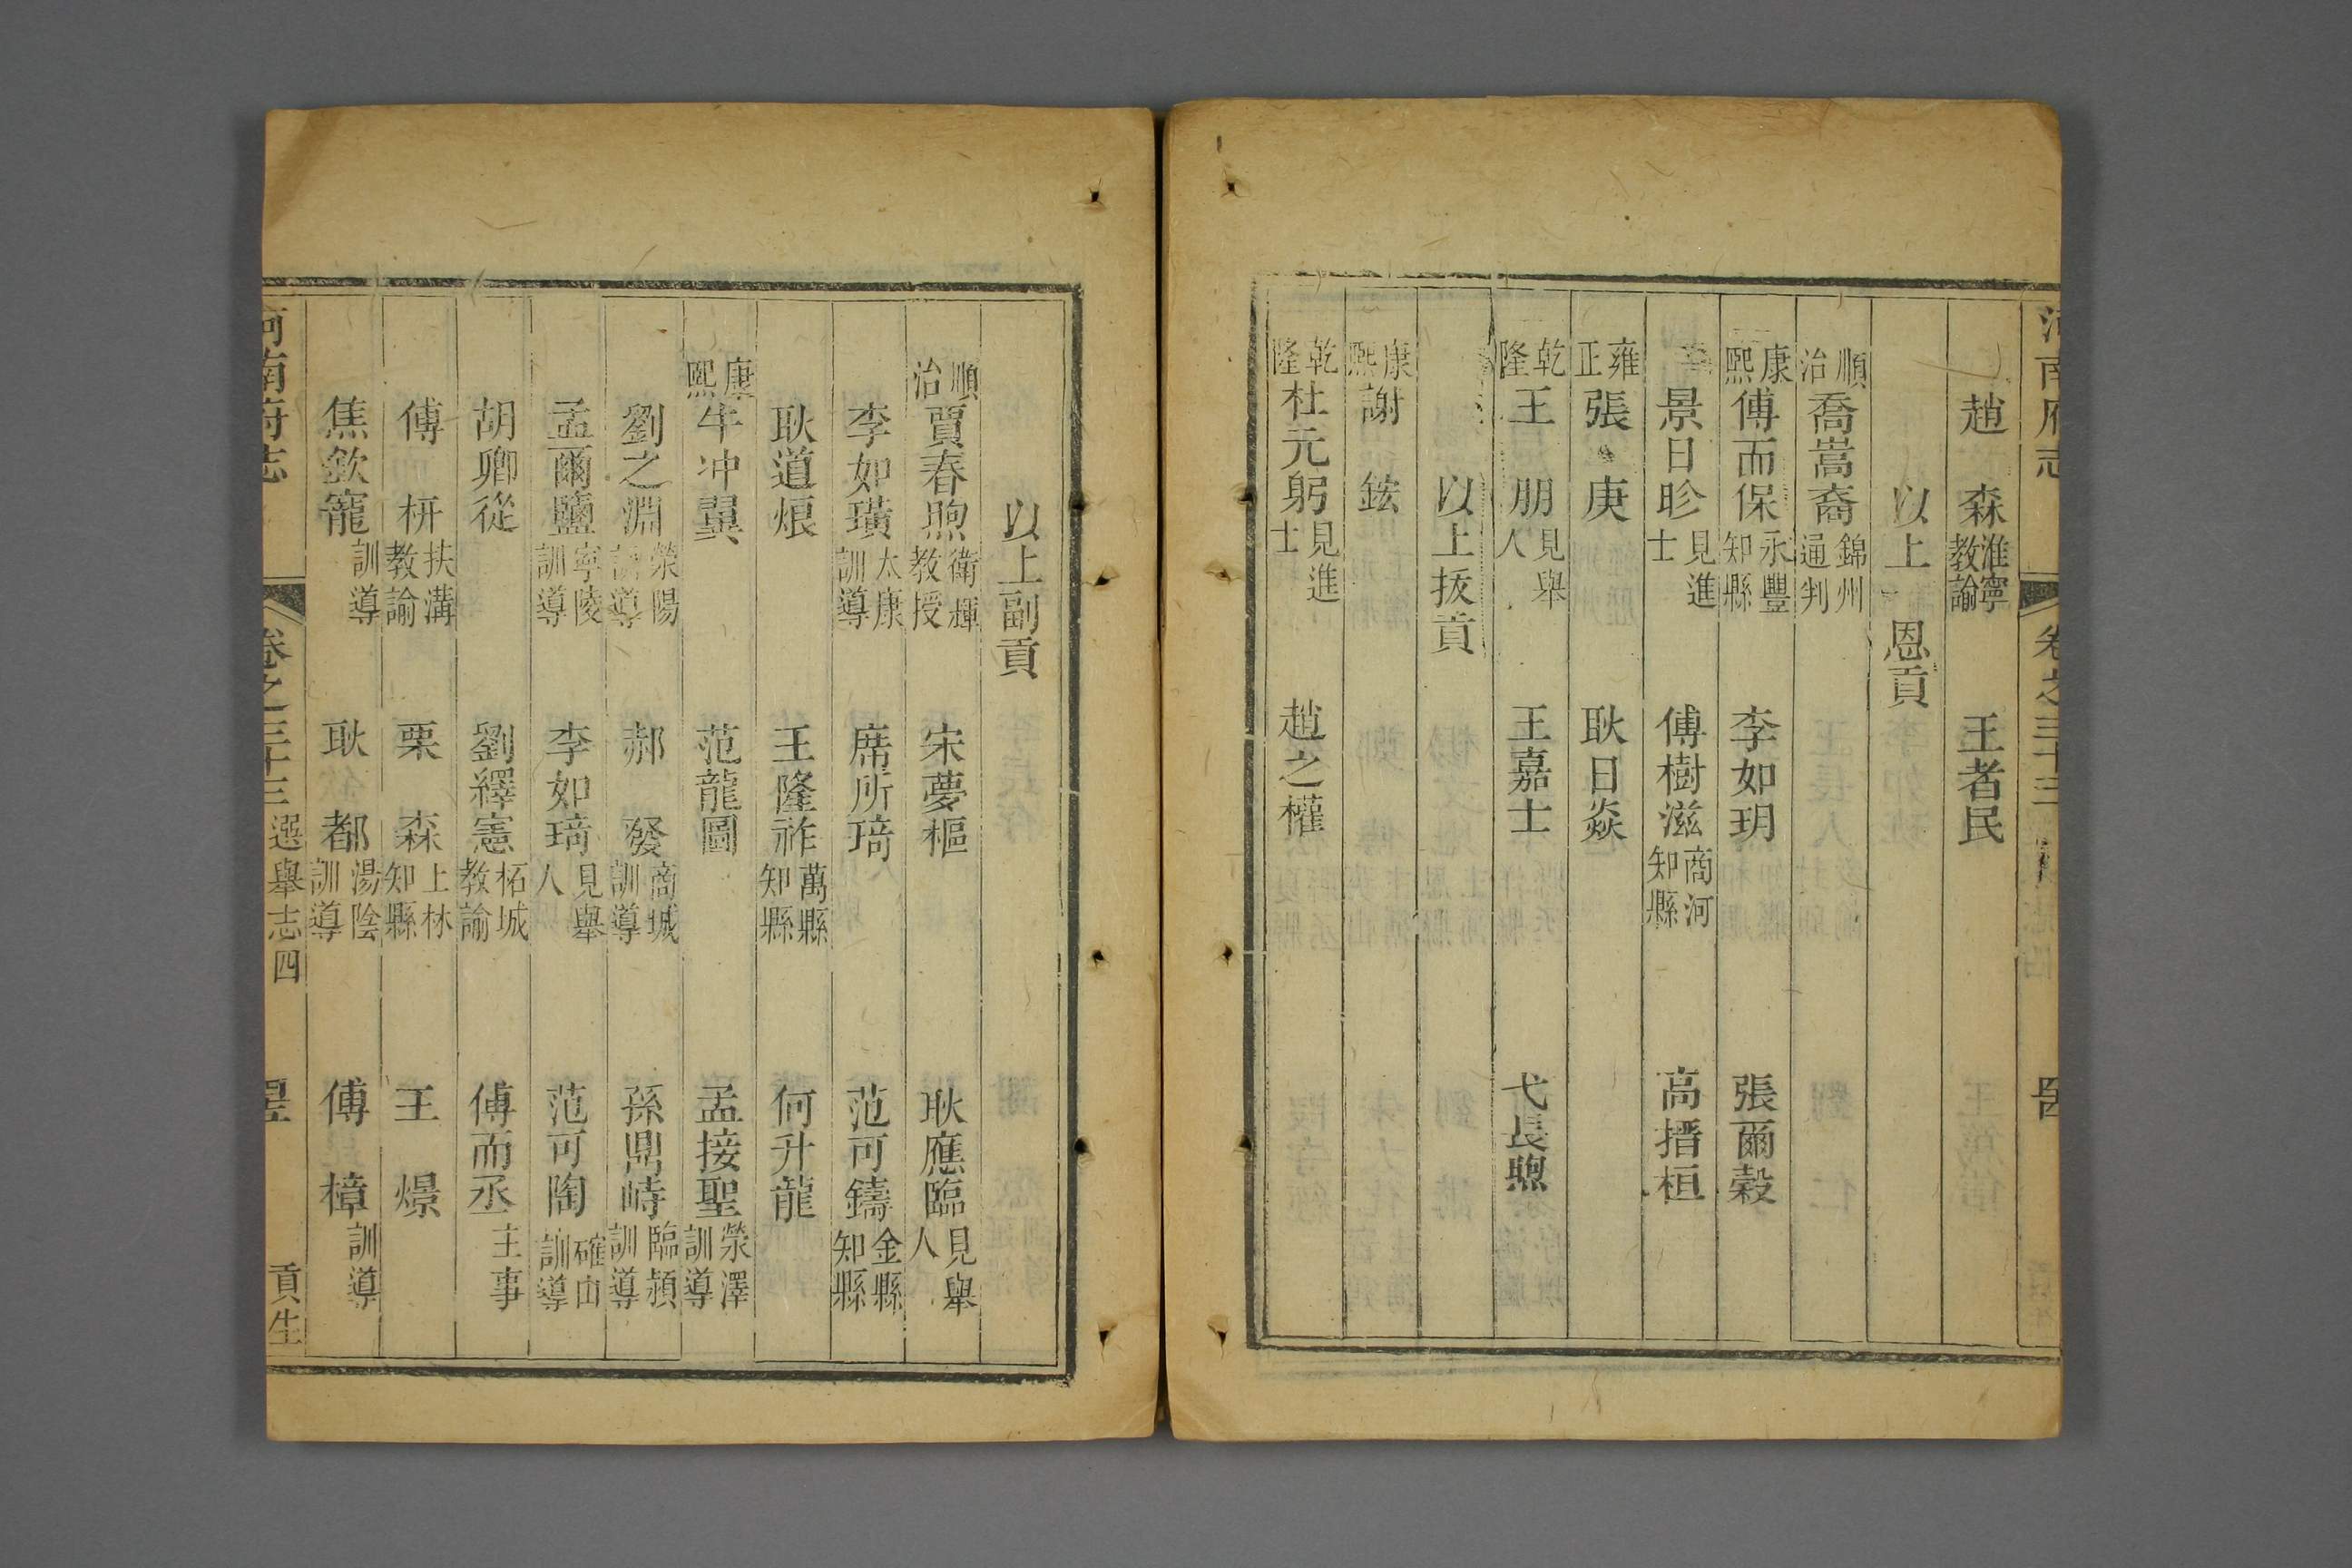 河南府志　卷之三十三
趙　森　淮寧教諭　王者民
以上　恩貢
順治　喬嵩裔　錦州通判
康熙　傅而保　永豐知縣　李如玥　張爾榖
景日昣　見進士　傅樹滋　商河知縣　高搢桓
雍正　張　庚　耿日焱
乾隆　王　朋　見舉人　王嘉士　弋長煦
以上拔貢
康熙　謝　鉉
乾隆　杜元躬　見進士　趙之權
以上副貢
順治　賈春煦　衛輝教授　宋夢樞　耿應臨　見舉人
李如璜　太康訓導　席所琦　范可鑄　金縣知縣
耿道烺　王隆祚　萬縣知縣　何升龍
康熙　牛冲翼　范龍圖　孟接聖　滎澤訓導
劉之淵　滎陽訓導　郝　發　商城訓導　孫鼎峙　臨潁訓導
孟爾鹽　寧陵訓導　李如琦　見舉人　范可陶　確山訓導
胡卿從　劉繹憲　柘城教諭　傅而丞　主事
傅　枅　扶溝教諭　栗　森　上林知縣　王　燝
焦欽寵　訓導　耿　都　湯陰訓導　傅　樟　訓導
河南府志　卷之三十三　選舉志四　貢生